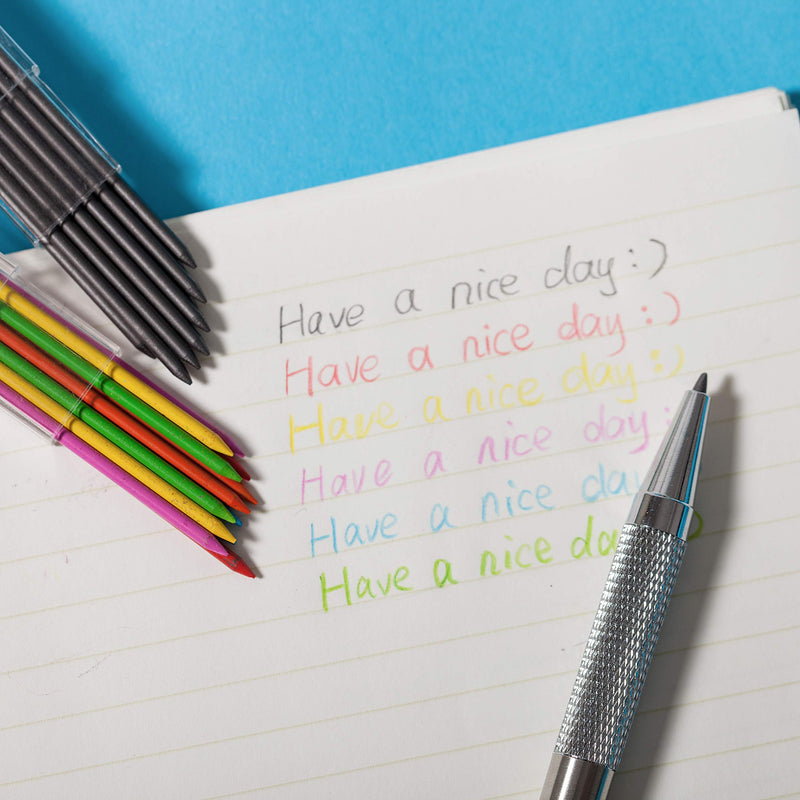 Have a nice day:)
Have a nice day:)
Have a nice day:)
Have a nice day:
Have a nice day
Have a nice da